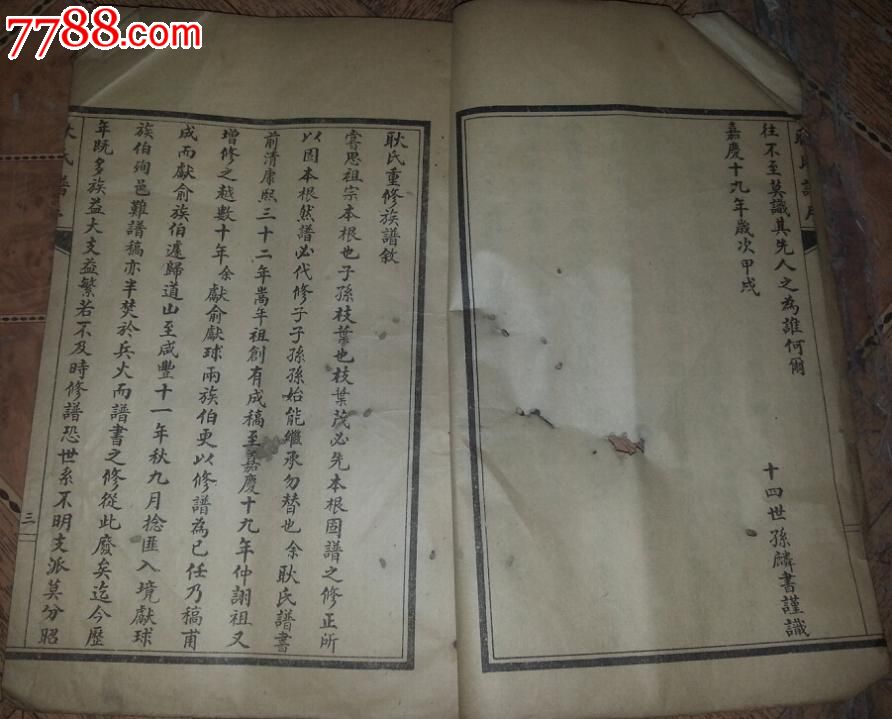 7788.com
往不至莫識其先人之為誰何爾
十四世孫麟書謹識
嘉慶十九年歲次甲戌
耿氏重修族譜敘
嘗思祖宗本根也子孫枝葉也枝葉茂必先本根固譜之修正所
以固本根然譜必代修子子孫孫始能繼承勿替也余耿氏譜書
前清康熙三十二年嵩年祖創有成稿至嘉慶十九年仲詡祖又
增修之越數十年余獻俞獻球兩族伯更以修譜為已任乃稿甫
成而獻俞族伯遽歸道山至咸豐十一年秋九月捻匪入境獻球
族伯殉邑難譜稿亦半焚於兵火而譜書之修從此廢矣迄今歷
年既多族益大支益繁若不及時修譜恐世系不明支派莫分昭
氏譜
三